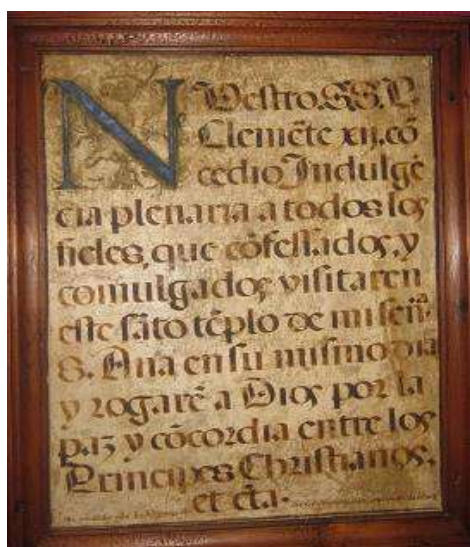 NUestro. SS. P.
Clemẽte xij. cõ
cedio Indulgẽ
cia plenaria a todos los
fieles, que cõfessados, y
comulgados visitaren
este sãto tẽplo de mi señ.ª
S. Ana en su mismo dia
y rogarẽ a Dios por la
paz y cõcordia entre los
Principes Christianos,
et cẽt.a.